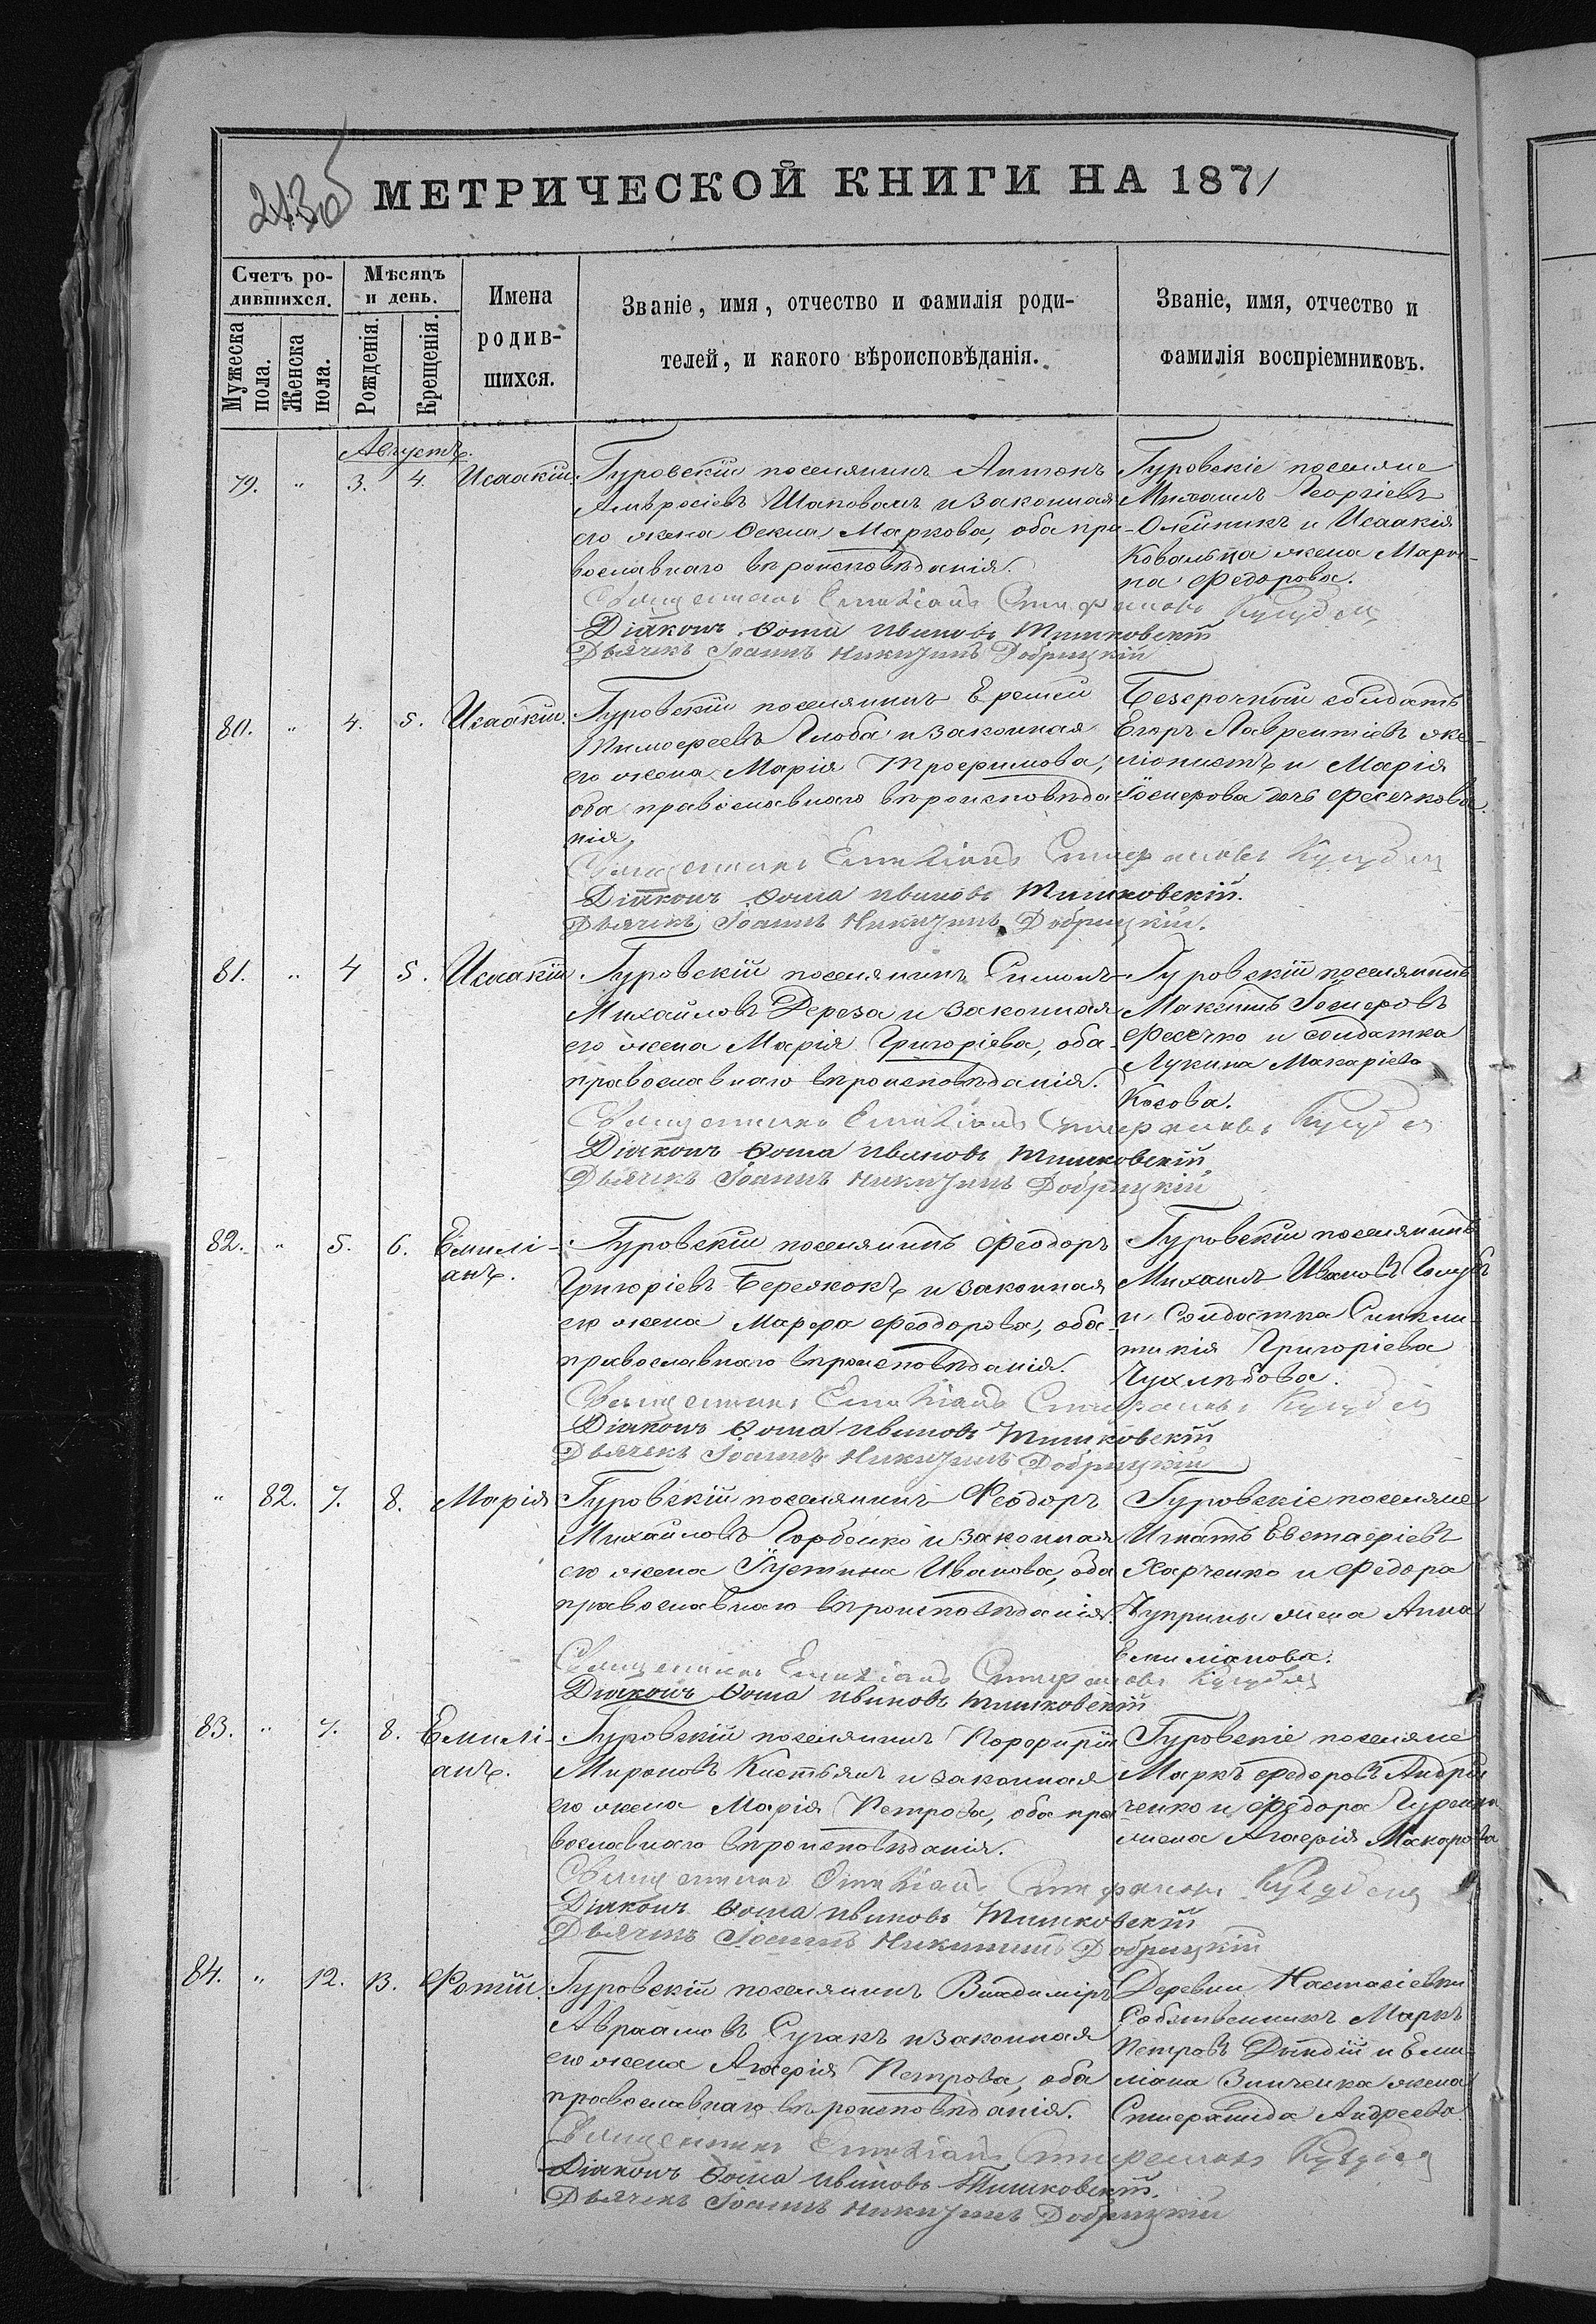 213об
МЕТРИЧЕСКОЙ КНИГИ НА 1871
Счетъ ро-
дившихся.
Мѣсяцъ
и день.
Мужеска
пола.
Женска
пола.
Рожденія.
Крещенія.
Имена
родив-
шихся.
Званіе, имя, отчество и фамилія роди-
телей, и какого вѣроисповѣданія.
Званіе, имя, отчество и
фамилія воспріемниковъ.
Августъ.
79. " 3. 4. Исаакій.
Гуровскій поселянинъ Антонъ
Амвросіевъ Шаповалъ и законная
его жена Ѳекла Маркова, оба пра-
вославнаго вѣроисповѣданія.
Гуровскіе поселяне
Михаилъ Георгіевъ
Олейникъ и Исаакія
Ковальца жена Мари-
на Федорова.
Священникъ Емиліанъ Стефановъ
Діаконъ Ѳома Ивановъ Тишковскій
Дьячекъ Іоаннъ Никитинъ Добрицкій
80. " 4. 5. Исаакій.
Гуровскій поселянинъ Еремей
Тимофеевъ Глоба и законная
его жена Марія Трофимова,
оба православнаго вѣроисповѣда-
нія.
Безсрочный солдатъ
Егоръ Лаврентіевъ
и Марія
Іосифова дочь Фесечкова.
Священникъ Емиліанъ Стефановъ
Діаконъ Ѳома Ивановъ Тишковскій.
Дьячекъ Іоаннъ Никитинъ Добрицкій.
81. " 4 5. Исаакій
Гуровскій поселянинъ Симонъ
Михайловъ Дереза и законная
его жена Марія Григоріева, оба
православнаго вѣроисповѣданія.
Гуровскій поселянинъ
Максимъ Іосифовъ
Фесечко и солдатка
Лукина Макаріева
Косова.
Священникъ Емиліанъ Стефановъ
Діаконъ Ѳома Ивановъ Тишковскій
Дьячекъ Іоаннъ Никитинъ Добрицкій
82. " 5. 6. Емилі-
анъ.
Гуровскій поселянинъ Феодоръ
Григоріевъ Бережокъ и законная
его жена Марфа Феодорова, оба
православнаго вѣроисповѣданія.
Гуровскій поселянинъ
Михаилъ Ивановъ Голубъ
и Солдатка Синкли-
тикія Григоріева
Чухлѣбова.
Священникъ Емиліанъ Стефановъ
Діаконъ Ѳома Ивановъ Тишковскій
Дьячекъ Іоаннъ Никитинъ Добрицкій
" 82. 7. 8. Марія
Гуровскій поселянинъ Феодоръ
Михайловъ Горбенко и законная
его жена Іустина Иванова, оба
православнаго вѣроисповѣданія.
Гуровскіе поселяне
Игнатъ Евстафіевъ
Харченко и Федора
Чуприны жена Анна
Емиліанова.
Священникъ Емиліанъ Стефановъ
Діаконъ Ѳома Ивановъ Тишковскій
83. " 7. 8. Емилі-
анъ.
Гуровскій поселянинъ Порфирій
Мироновъ Костьянъ и законная
его жена Марія Петрова, оба пра-
вославнаго вѣроисповѣданія.
Гуровскіе поселяне
Маркъ Федоровъ Андрю-
ченко и Федора Гуренка
жена Агафія Макарова
Священникъ Емиліанъ Стефановъ
Діаконъ Ѳома Ивановъ Тишковскій
Дьячекъ Іоаннъ Никитинъ Добрицкій
84. " 12. 13. Фотій.
Гуровскій поселянинъ Владиміръ
Авраамовъ Сугакъ и законная
его жена Агафія Петрова, оба
православнаго вѣроисповѣданія.
Деревни Настасіевки
Собственникъ Маркъ
Петровъ Дындій и Еми-
ліана Зинченка жена
Стефанида Андреева.
Священникъ Емиліанъ Стефановъ
Діаконъ Ѳома Ивановъ Тишковскій.
Дьячекъ Іоаннъ Никитинъ Добрицкій